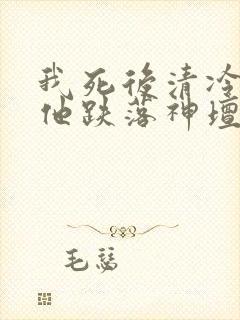 我死後清冷
他跌落神壇
毛